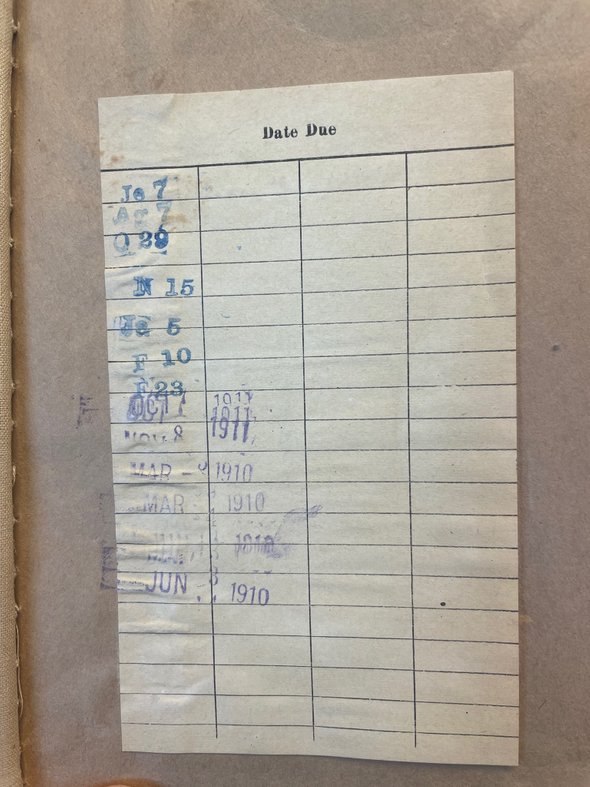 Date Due
Ja 7
Ar 7
O 29
N 15
Ja 5
F 10
F 23
OCT 1911
1911
NOV 8 1911
MAR - 1910
MAR 1910
1910
JUN 1910